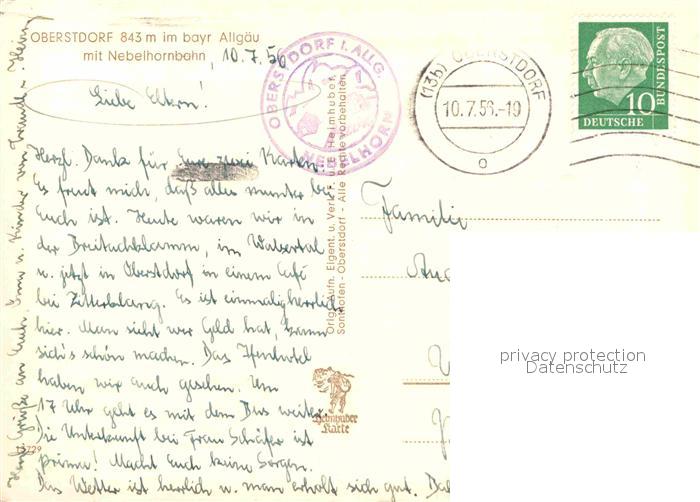 OBERSTDORF 843 m im bayr Allgäu
mit Nebelhornbahn, 10.7.56
Liebe Eltern!
Herzl. Dank für Eure zwei Karten.
Es freut mich, daß alles munter bei
Euch ist. Heute waren wir in
der Breitachklamm, im Walsertal
u. jetzt in Oberstdorf in einem Café
bei Zitterklang. Es ist einmalig herrlich
hier. Man sieht wer Geld hat, kann
sich's schön machen. Das Ifenhotel
haben wir auch gesehen. Um
17 Uhr geht es mit dem Bus weiter.
Die Unterkunft bei Frau Schäfer ist
prima! Macht Euch keine Sorgen.
Das Wetter ist herrlich u. man erholt sich gut.
Herzl. Grüße an Euch, u. Kinder von
OBERSTDORF i. ALLG.
NEBELHORN
Orig. Aufn. Eigent. u. Verl. F. u. E. Heimhuber,
Sonthofen - Oberstdorf - Alle Rechte vorbehalten
Heimhuber
Karte
(13b) OBERSTDORF
10.7.56.-19
DEUTSCHE
BUNDESPOST
10
Familie
privacy protection
Datenschutz